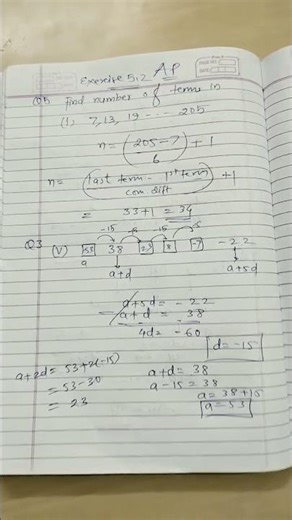 Exercise 5.2 AP
Q5 Find number of terms in
(i) 7, 13, 19 - - - - 205
n = (205 - 7 / 6) + 1
n = (last term - 1st term / com. diff) + 1
= 33+1 = 34
-15 -15 -15 -15
Q3 (V) 53 38 23 8 -7 -22
a a+d a+5d
a+5d = -22
a+d = 38
4d = -60
d = -15
a+2d = 53+2(-15)
= 53-30
= 23
a+d = 38
a-15 = 38
a = 38+15
a = 53